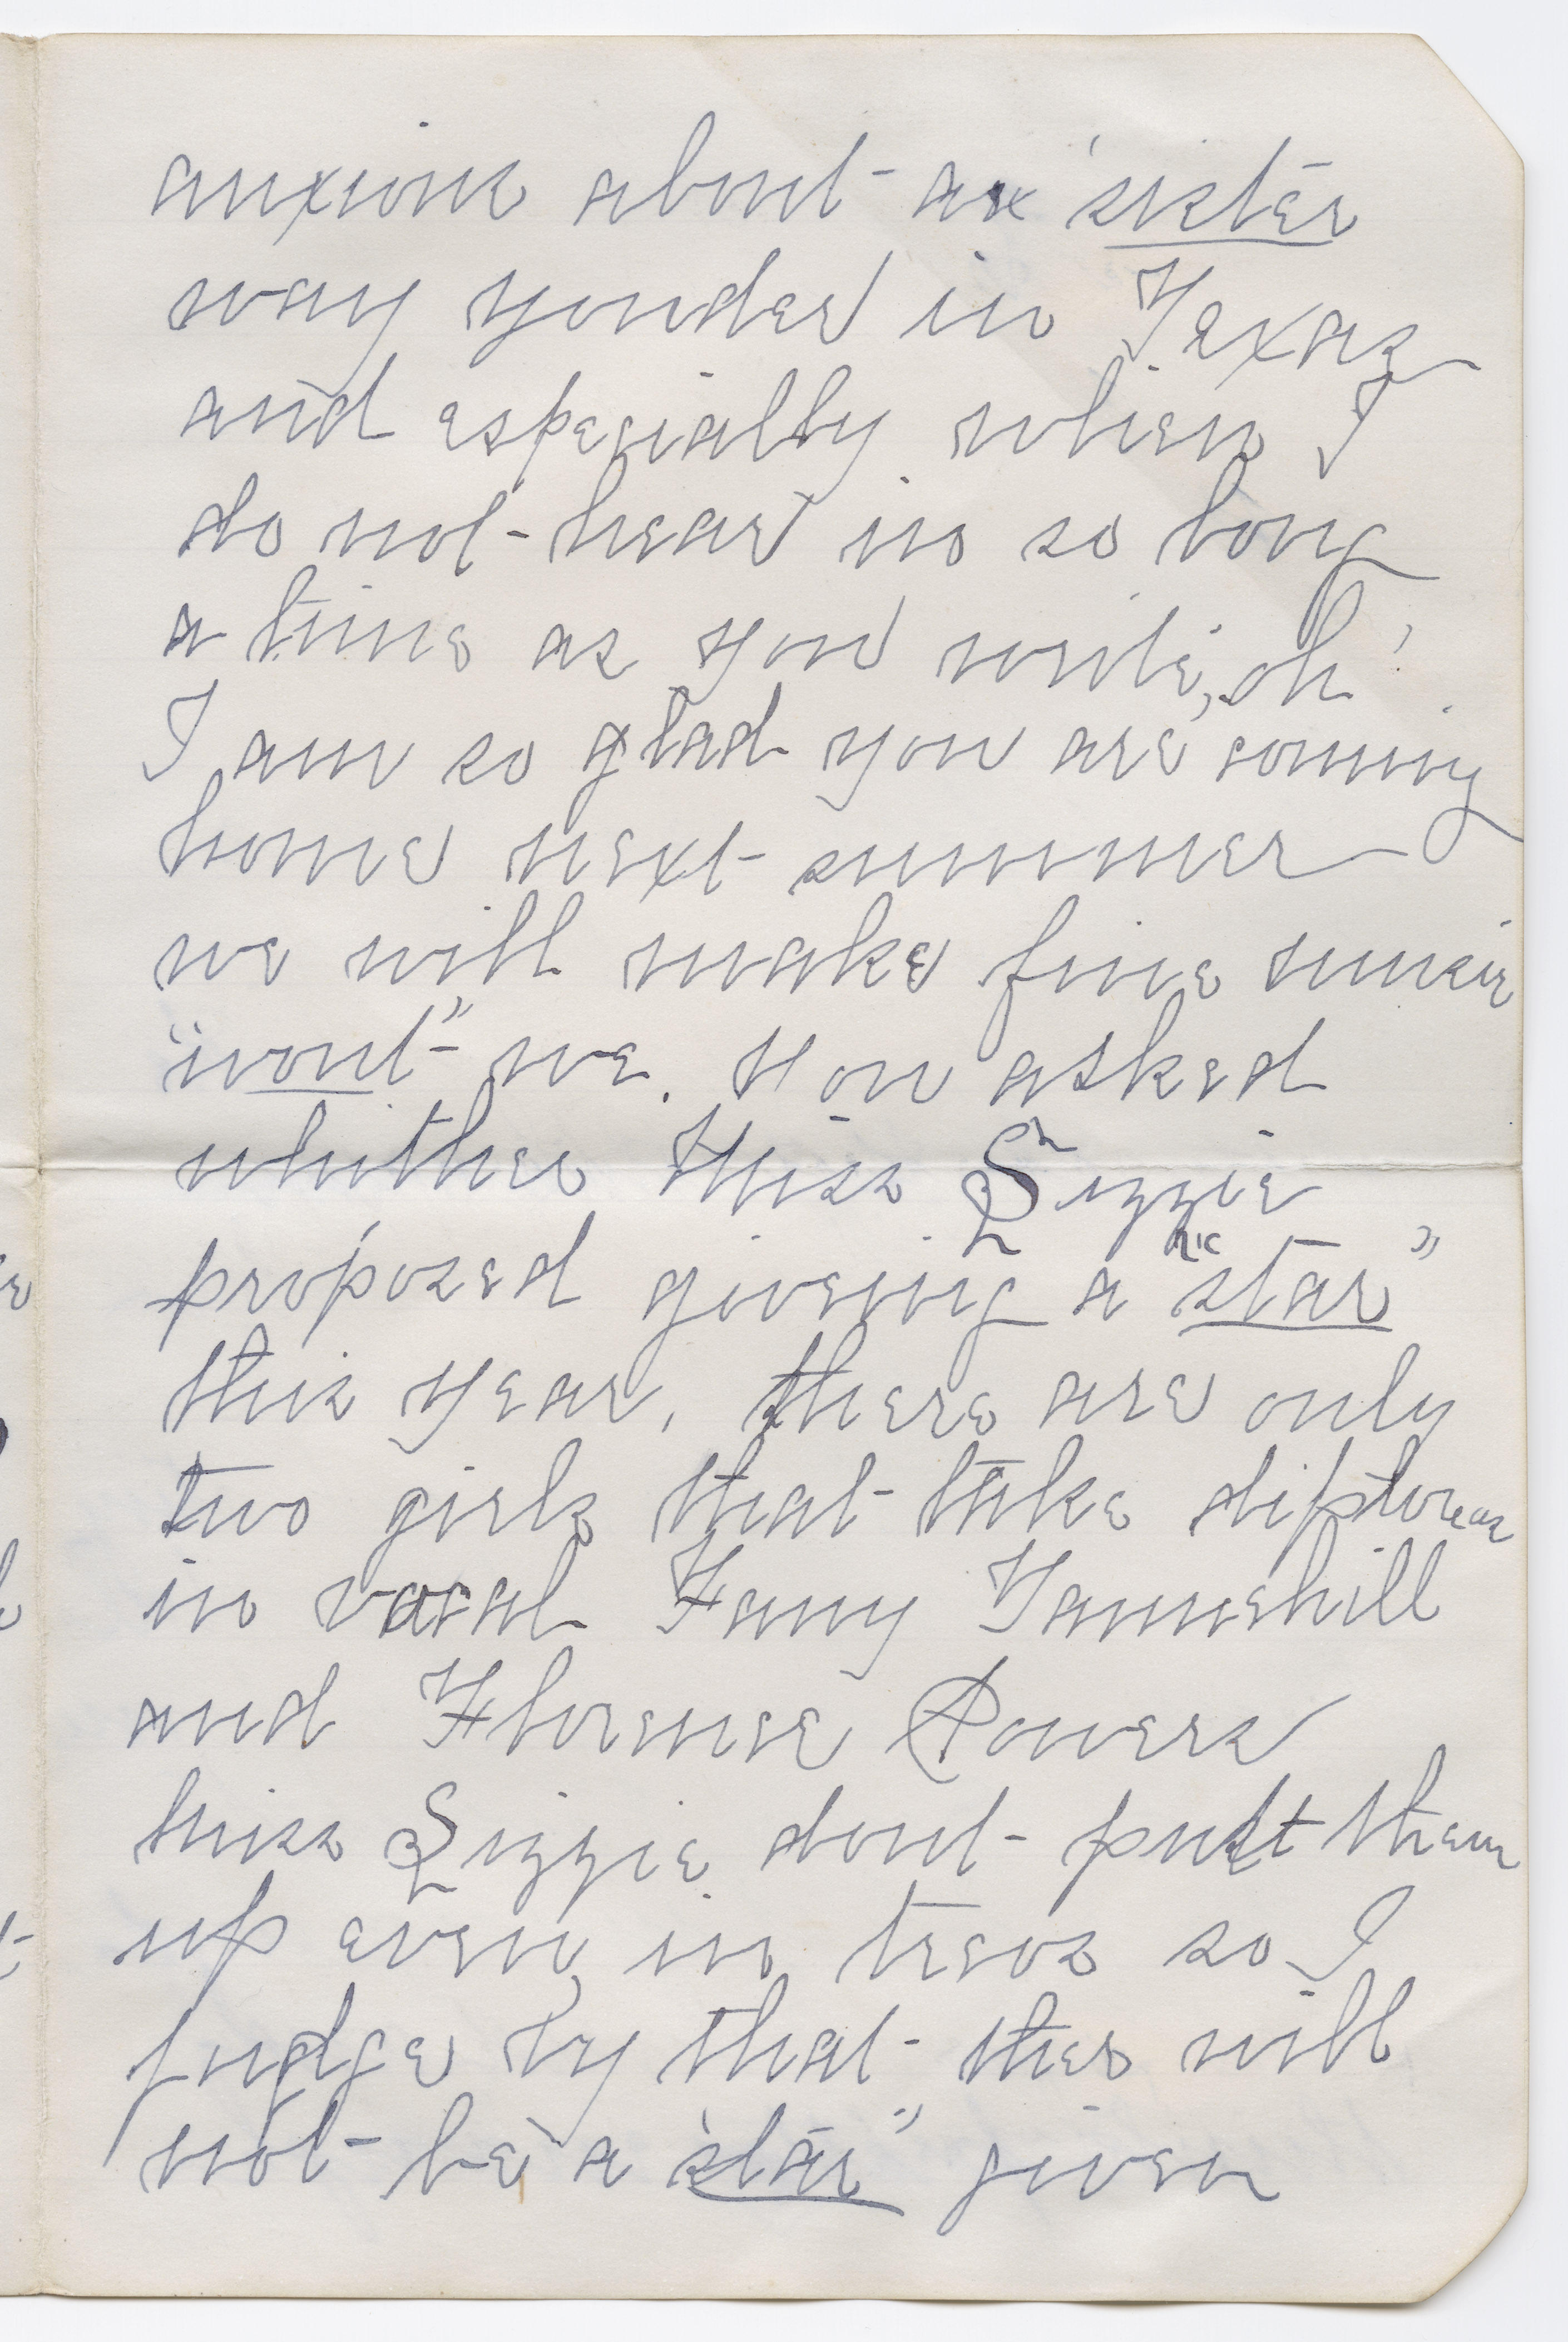 anxious about a 'sister
way yonder in Texas
and especially when I
do not hear in so long
a time as you write, oh!
I am so glad you are coming
home next summer
we will make fine music
"wont" we. You asked
whuther Miss Lizzie
proposed giveing a "star"
this year, there are only
two girls that take diplomas
in vocal Fany Tannehill
and Florence Powers
miss Lizzie dont put them
up even in trios so I
judge by that ther will
not be a "star" given